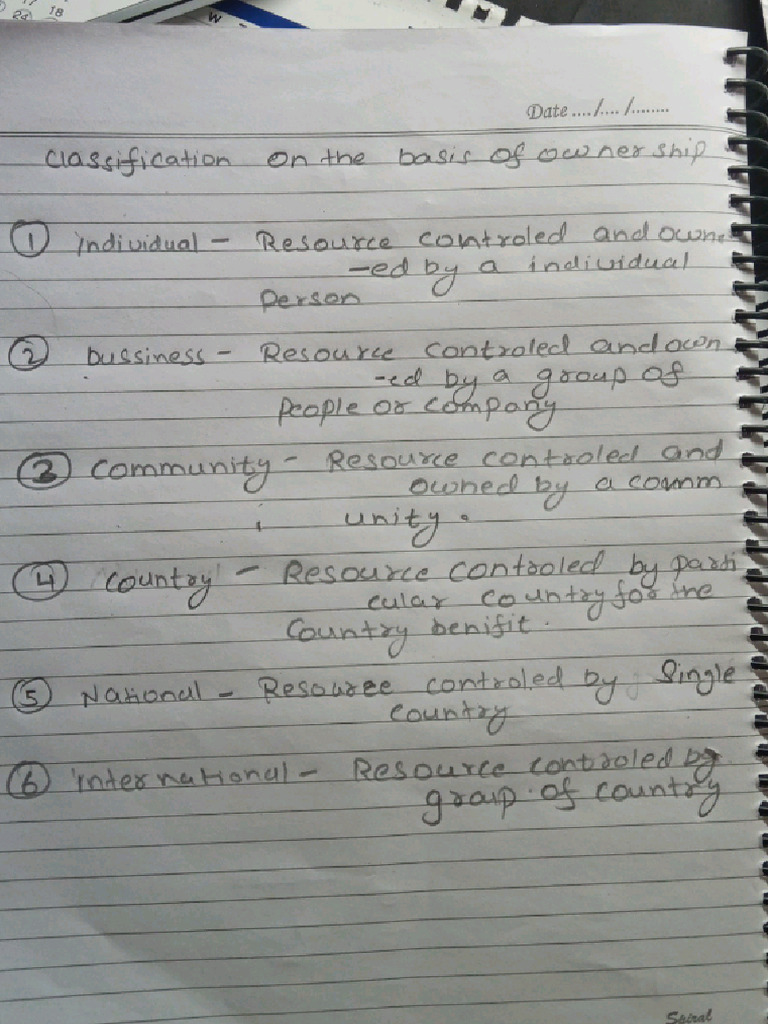 17
24 18
W
Date ..../..../........
Classification on the basis of owner ship
① individual - Resource controled and own
-ed by a individual
person
② bussiness - Resource controled and own
-ed by a group of
people or company
③ Community - Resource controled and
owned by a comm
unity.
④ country - Resource controled by parti
cular country for the
Country benifit.
⑤ National - Resource controled by Single
country
⑥ international - Resource controled by
group of country
Spiral